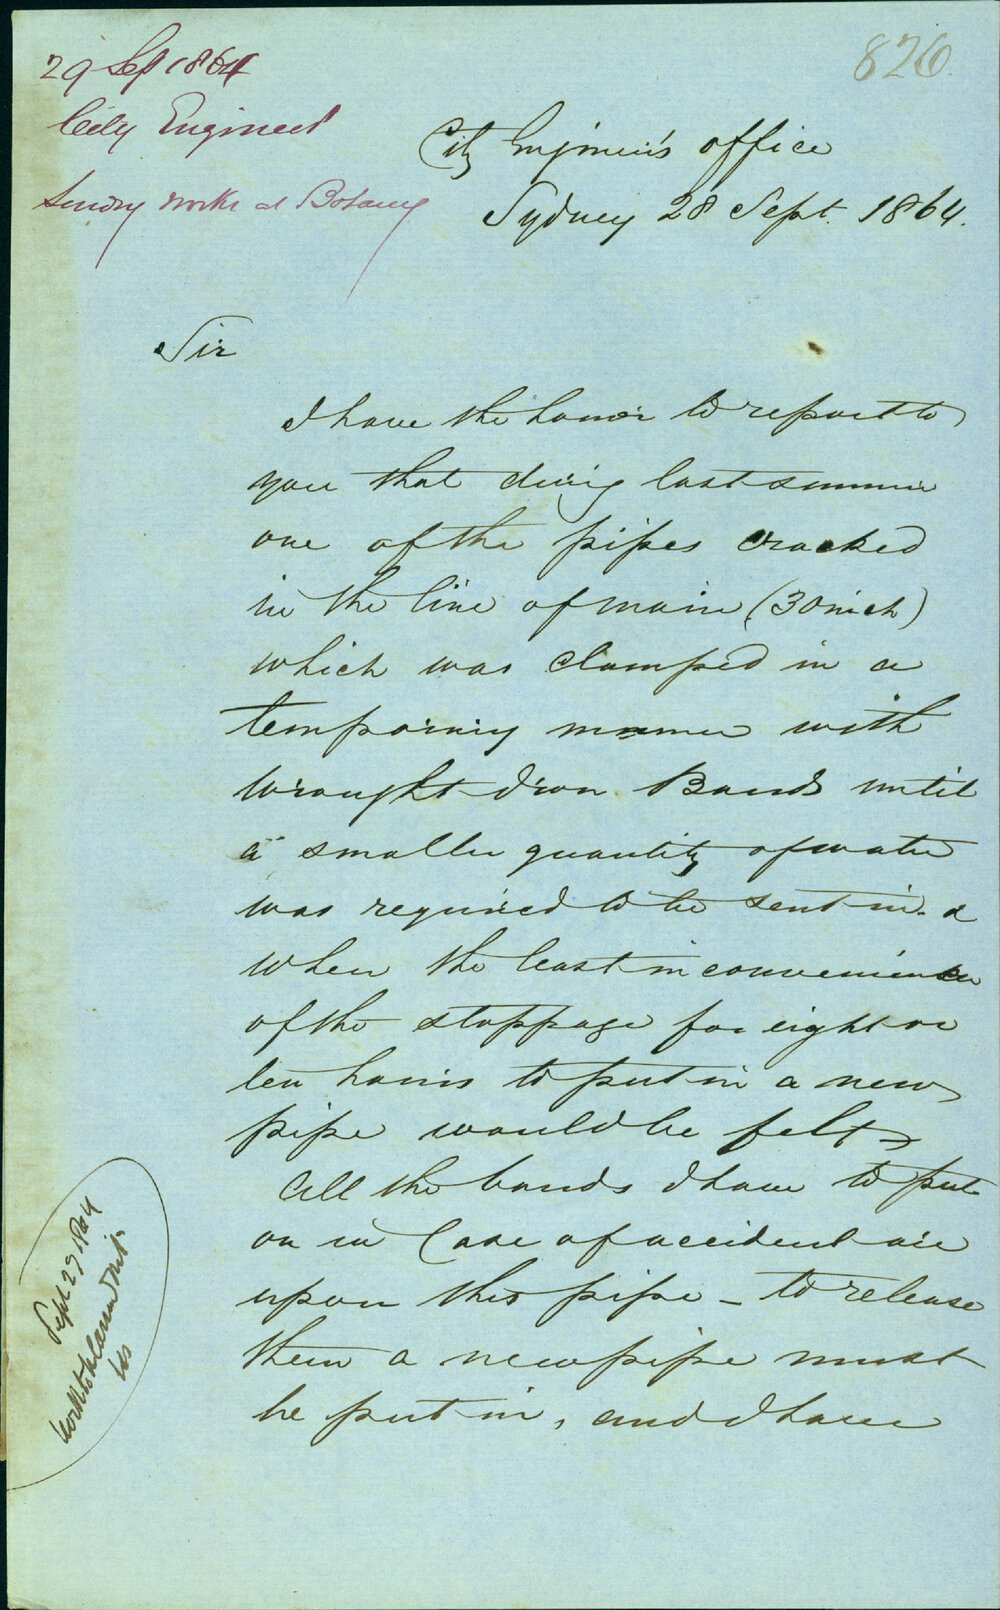 29 Sep 1864
City Engineer
Sundry works at Botany
826.
City Engineer's office
Sydney 28 Sept. 1864.
Sir
I have the honor to report to
you that during last summer
one of the pipes cracked
in the line of main (30 inch)
which was clamped in a
temporary manner with
wrought Iron Bands until
a smaller quantity of water
was required to be sent in &
when the least inconvenience
of the stoppage for eight or
ten hours to put in a new
pipe would be felt
All the bands I have to put
on in Case of accident are
upon this pipe – to release
them a new pipe must
be put in, and I have
Sept 29 1864